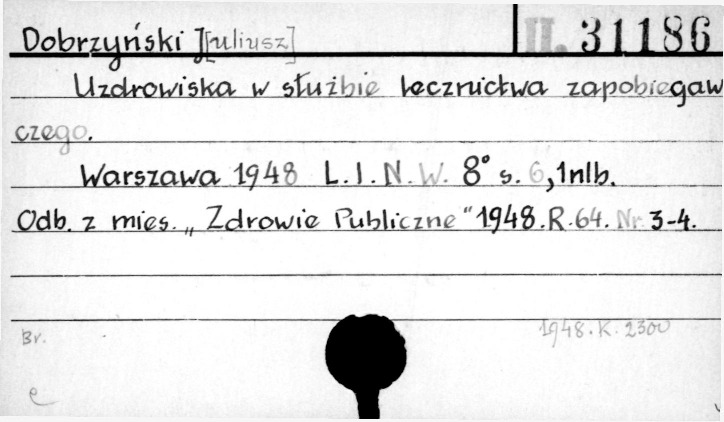 Dobrzyński J[uliusz] II. 31186
Uzdrowiska w służbie lecznictwa zapobiegaw
czego.
Warszawa 1948 L.I.N.W. 8° s. 6, 1nlb.
Odb. z mies. „Zdrowie Publiczne" 1948. R. 64. Nr 3-4.
Br. 1948. K. 2300
e